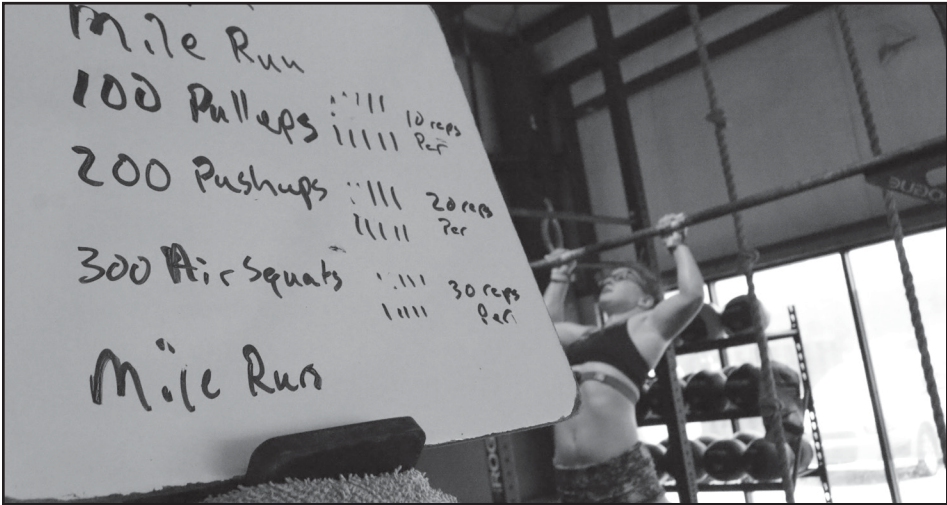 Mile Run
100 Pullups
10 reps
Per
200 Pushups
20 reps
Per
300 Air Squats
30 reps
Per
Mile Run
ROGUE